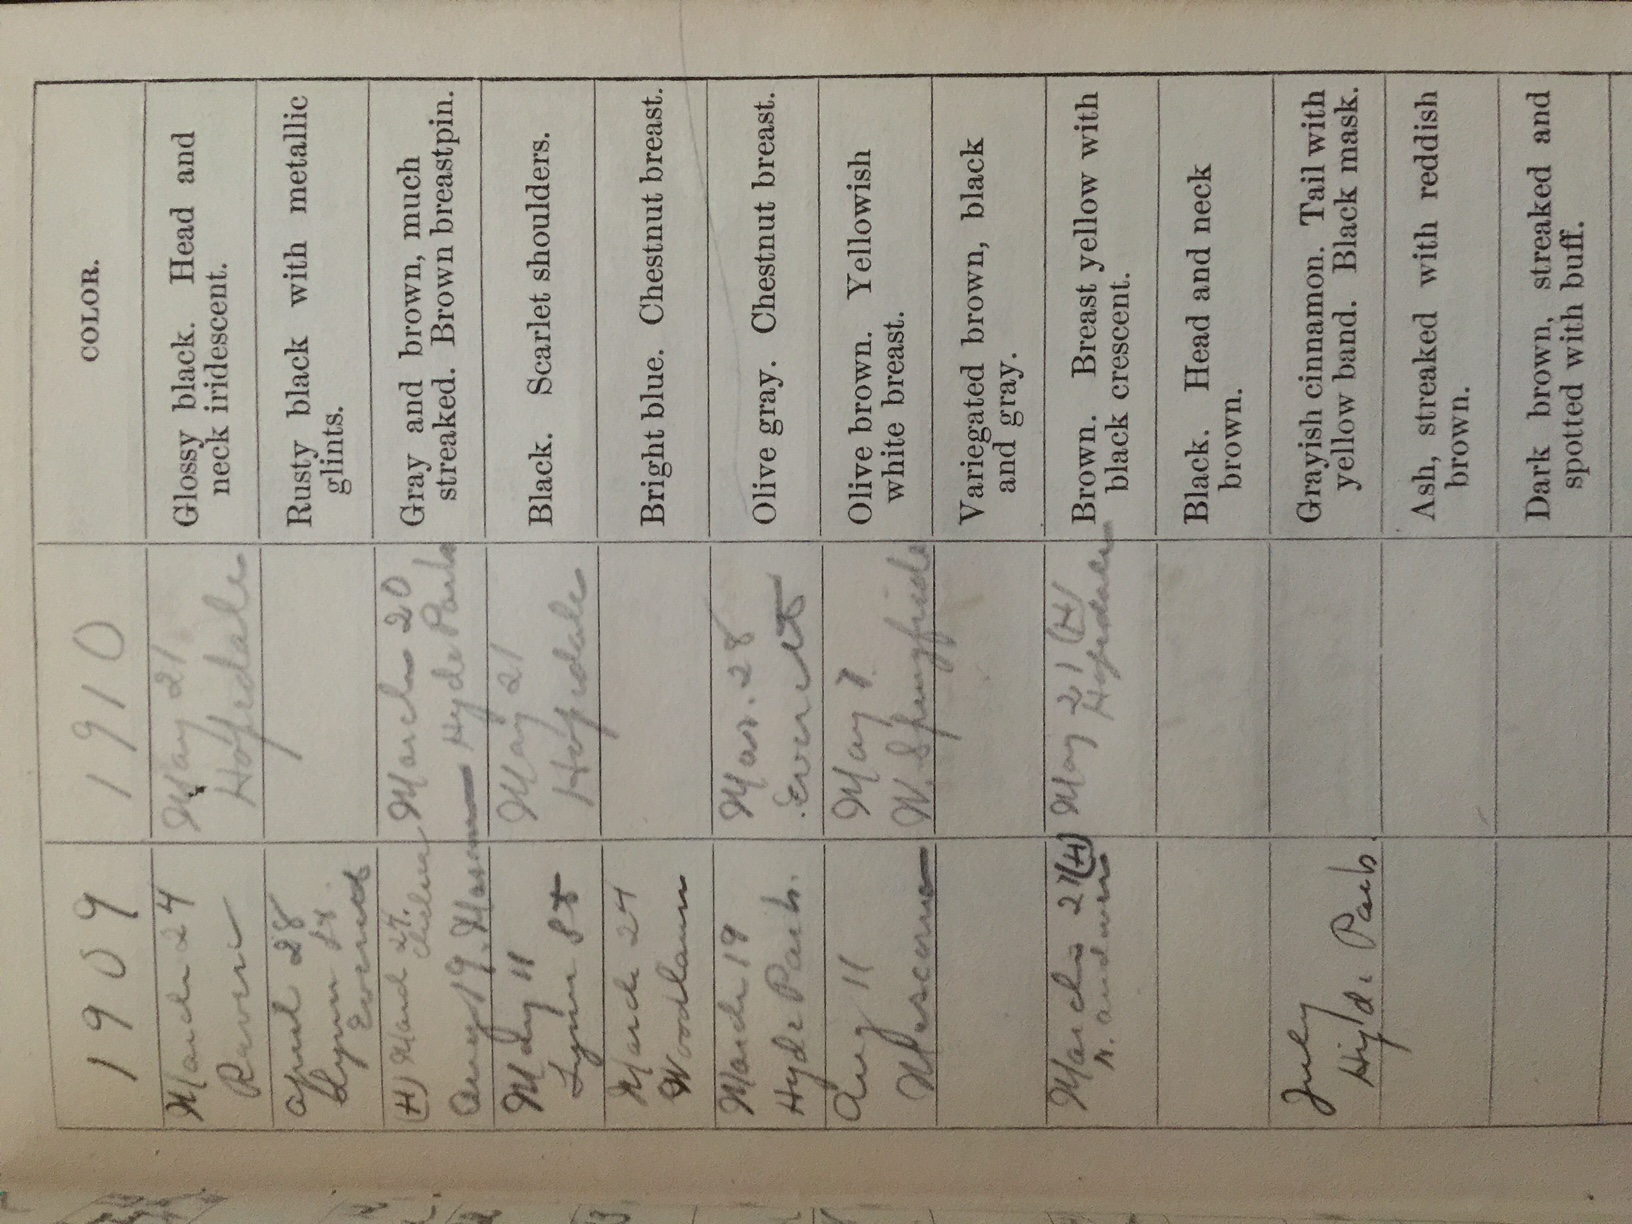 1909 1910 COLOR.
March 24 May 21 Glossy black. Head and
Revere Hopedale neck iridescent.
April 28 Rusty black with metallic
Lynn St. glints.
Everett
(H) March 27. March 20 Gray and brown, much
Chelsea Hyde Park streaked. Brown breastpin.
Aug 19.
May 11 May 21 Black. Scarlet shoulders.
Lynn St Hopedale
March 24 Bright blue. Chestnut breast.
Woodlawn
March 19 Mar. 28 Olive gray. Chestnut breast.
Hyde Park. Everett
Aug 11 May 8 Olive brown. Yellowish
W. Springfield white breast.
Variegated brown, black
and gray.
March 27 (H) May 21 (H) Brown. Breast yellow with
N. Andover Hopedale black crescent.
Black. Head and neck
brown.
July Grayish cinnamon. Tail with
Hyde Park. yellow band. Black mask.
Ash, streaked with reddish
brown.
Dark brown, streaked and
spotted with buff.